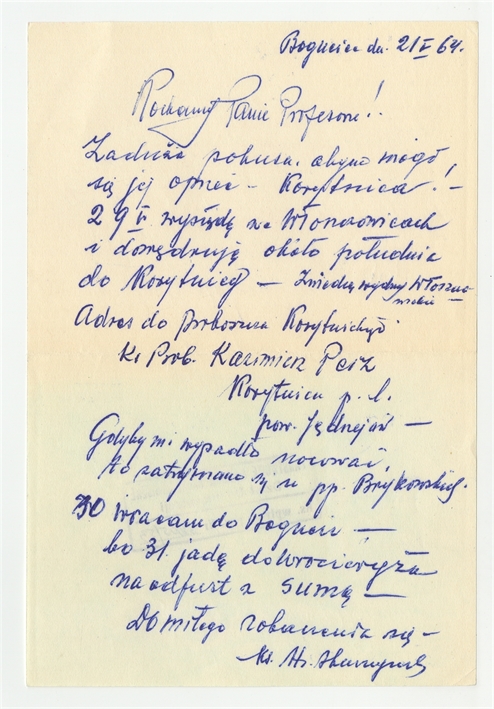 Bogucice dn. 21 V 64.
Kochany Panie Profesorze!
Za duża pokusa, abym mógł
się jej oprzeć – Korytnica! –
29 V wysiądę we Włoszczowicach
i dowędruję około południa
do Korytnicy – Zwiedzę wydmy
Adres do proboszcza Korytnickiego
Ks Prob. Kazimierz Peiż
Korytnica p. l.
pow. Jędrzejów –
Gdyby mi wypadło nocować,
to zatrzymam się u pp. Brykowskich.
30 wracam do Bogucic –
bo 31. jadę do Wrocieryża
na odpust z sumą –
Do miłego zobaczenia się –
Ks.